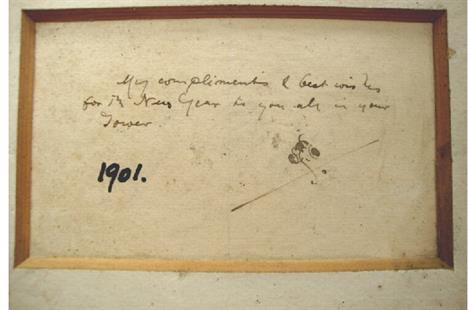 My compliments & best wishes
for the New Year to you all in your
Tower
1901.